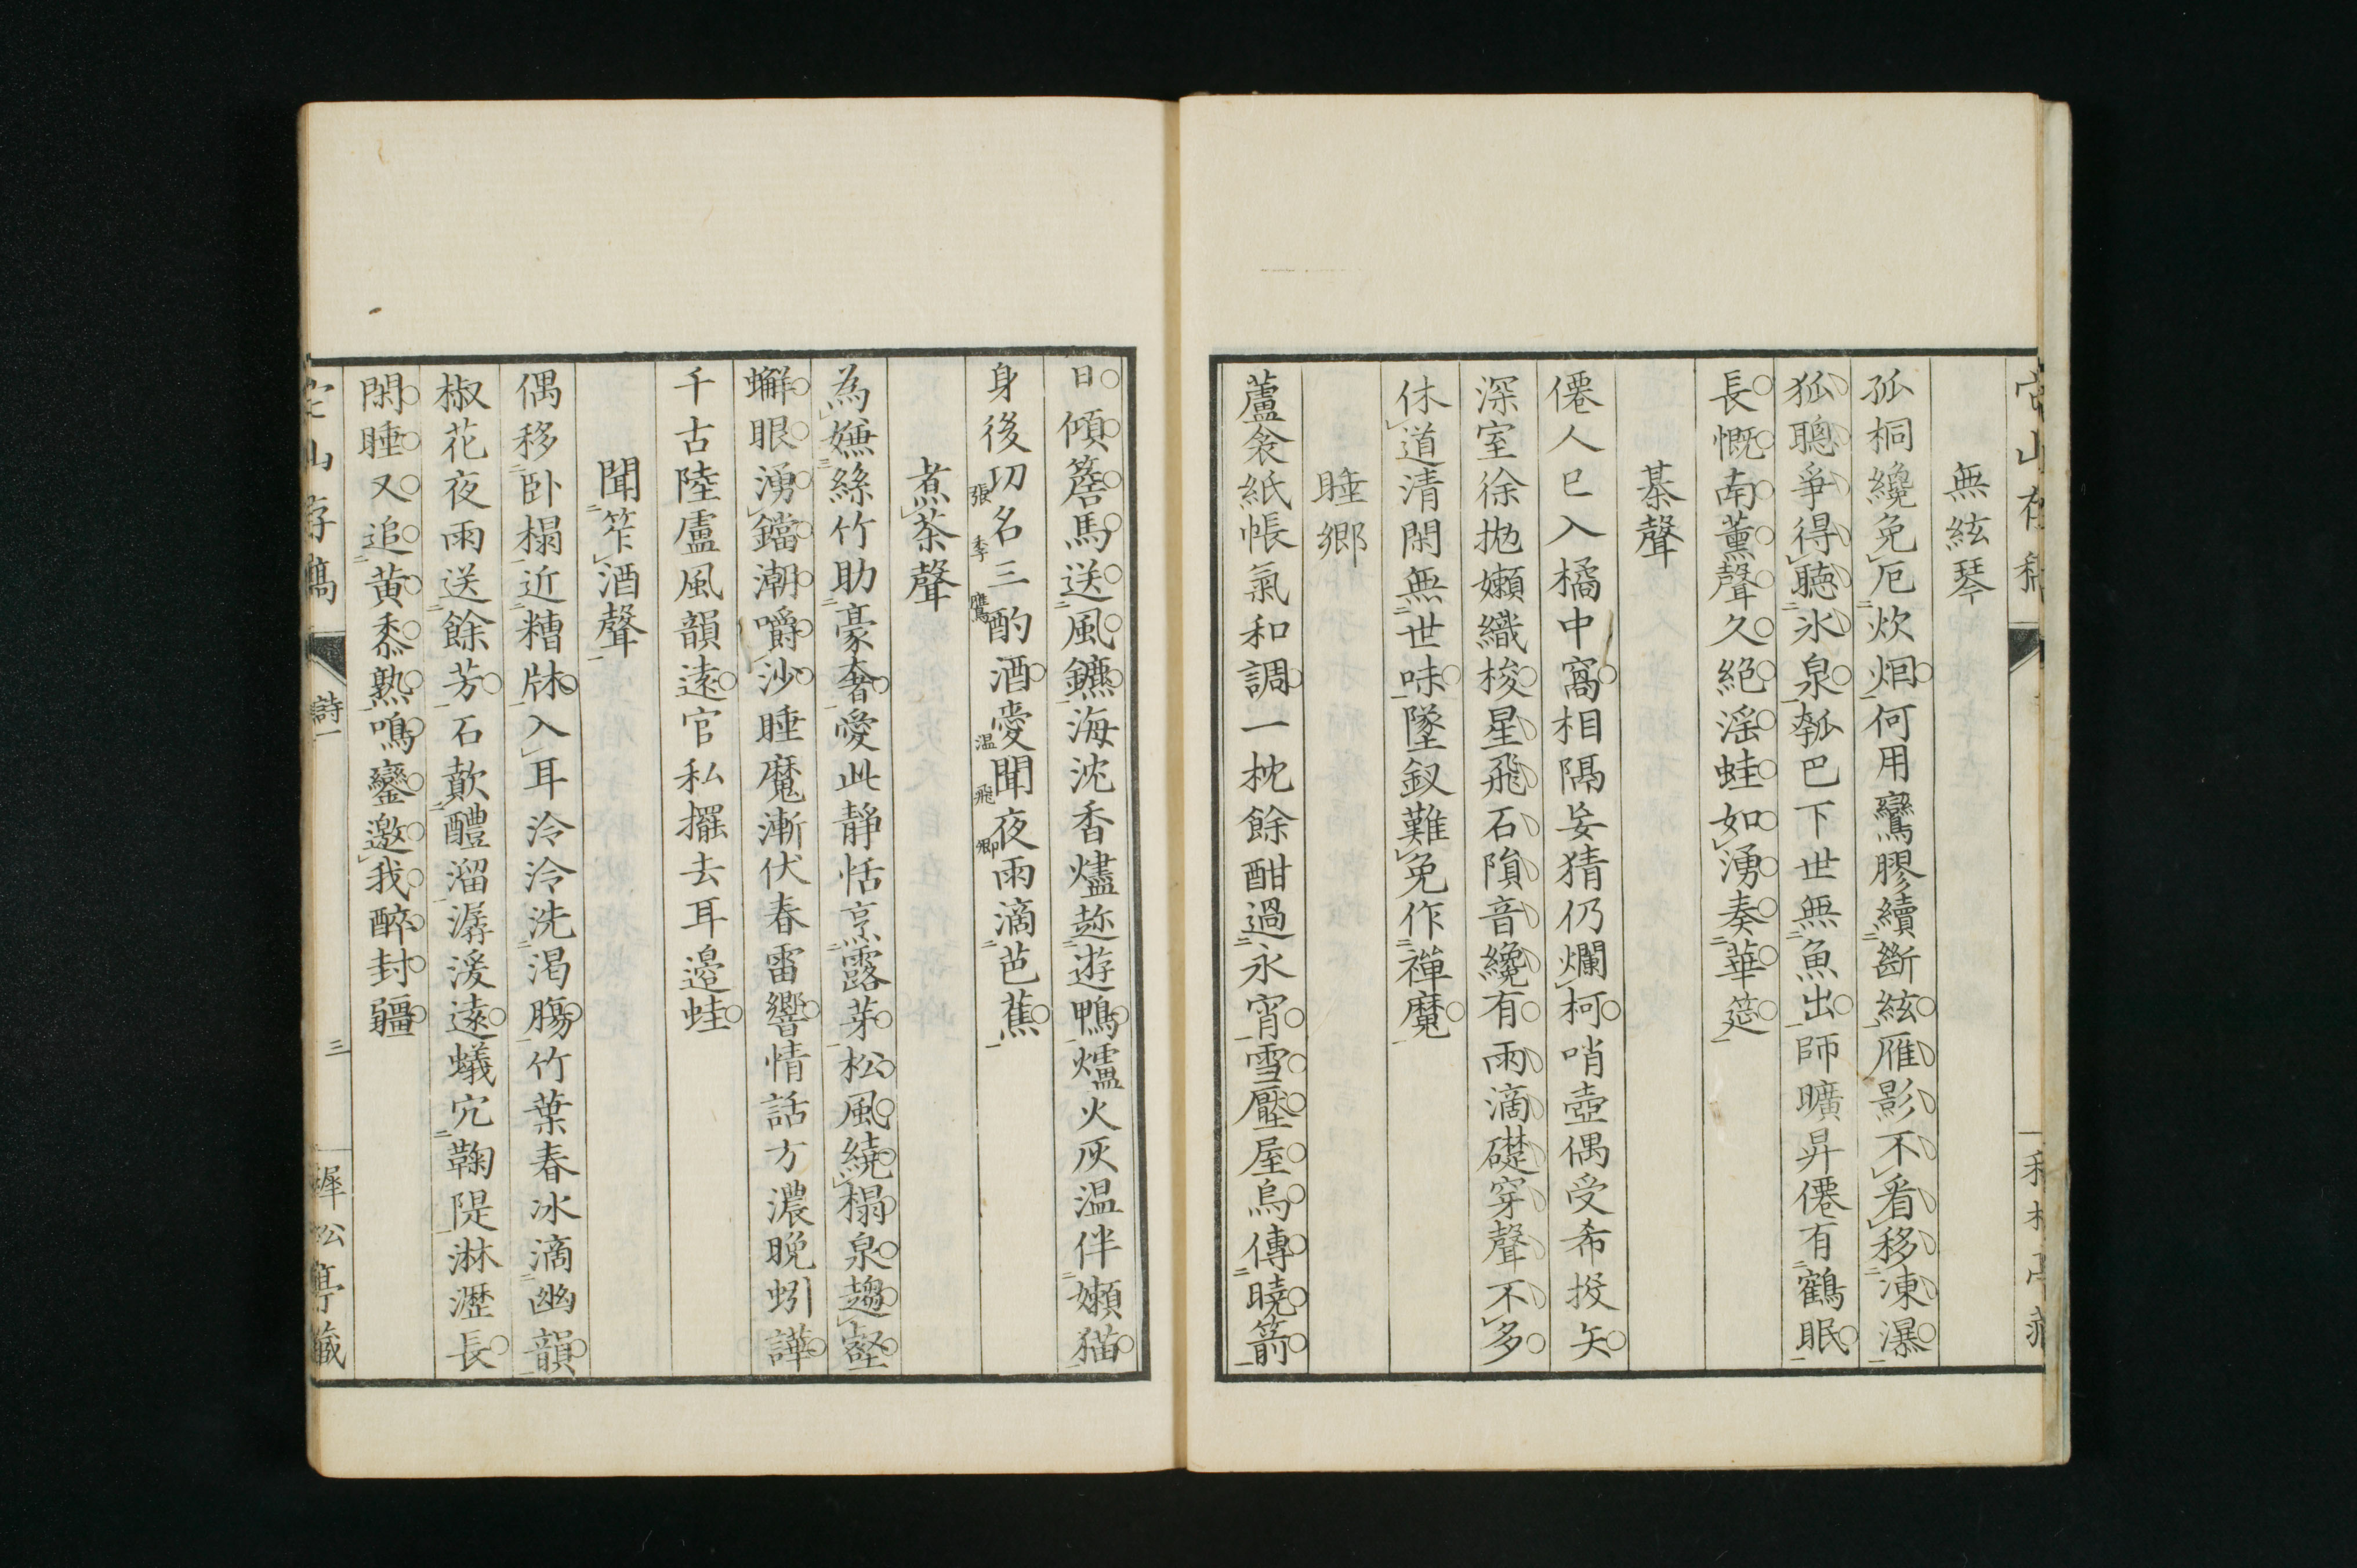 無絃琴
孤桐纔免厄炊烟何用鸞膠續斷絃雁影不看移凍瀑
狐聰爭得聽氷泉瓠巴下世無魚出師曠昇僊有鶴眠
長慨南薰聲久絕淫蛙如湧奏華筵
棊聲
僊人已入橘中窩相隔妄猜仍爛柯哨壺偶受希投矢
深室徐拋嬾織梭星飛石隕音纔有雨滴礎穿聲不多
休道清閑無世味墜釵難免作禪魔
睡鄉
蘆衾紙帳氣和調一枕餘酣過永宵雪壓屋烏傳曉箭
日傾簷馬送風鑣海沈香燼趂遊鴨爐火灰温伴嬾猫
身後功名三酌酒愛聞夜雨滴芭蕉
張季鷹
温飛卿
煮茶聲
為嫌絲竹助豪奢愛此靜恬烹露芽松風繞榻泉趨壑
蠏眼湧鐺潮嚼沙睡魔漸伏春雷響情話方濃晚蚓譁
千古陸盧風韻遠官私擺去耳邊蛙
聞笮酒聲
偶移卧榻近糟牀入耳泠泠洗渴膓竹葉春冰滴幽韻
椒花夜雨送餘芳石欹醴溜潺湲遠蟻穴鞠隄淋瀝長
閑睡又追黄黍熟鳴鑾邀我醉封疆
山存稿
詩一
三
松亭藏